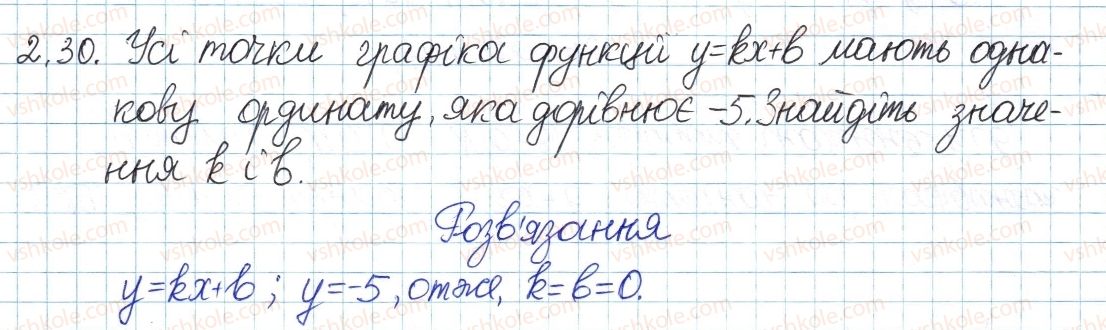 2.30. Усі точки графіка функції y=kx+b мають одна-
кову ординату, яка дорівнює -5. Знайдіть значе-
ння k і b.
Розв'язання
y=kx+b; y=-5, отже, k=b=0.